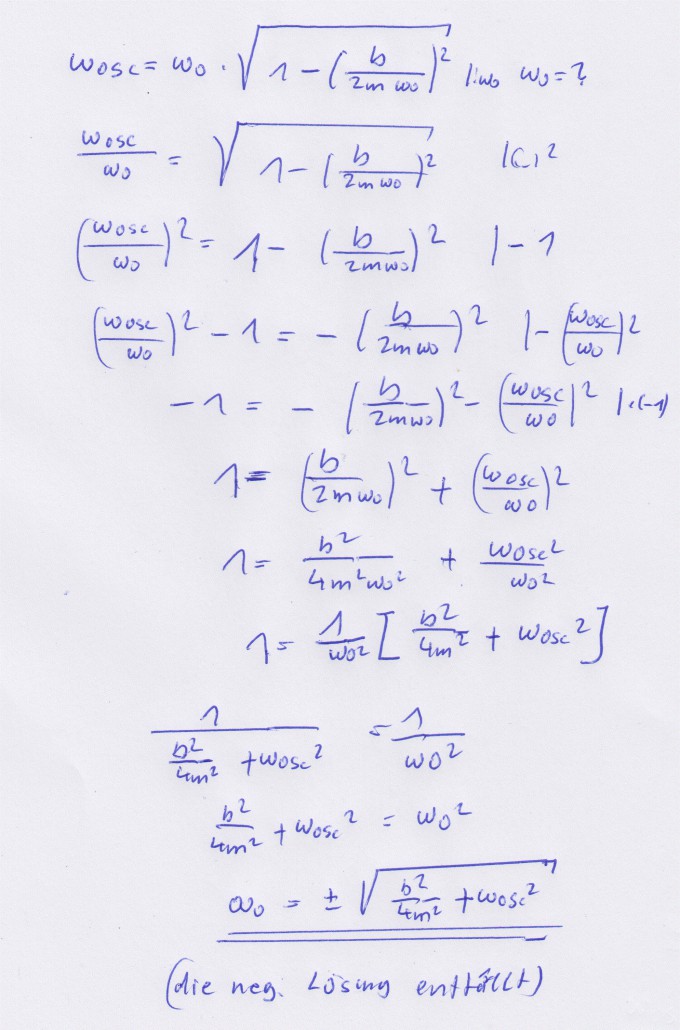 wosc = w0 · √(1 - (b/(2m w0))²) |:w0 w0 = ?
wosc/w0 = √(1 - (b/(2m w0))²) |( )²
(wosc/w0)² = 1 - (b/(2m w0))² |-1
(wosc/w0)² - 1 = - (b/(2m w0))² |- (wosc/w0)²
-1 = - (b/(2m w0))² - (wosc/w0)² |·(-1)
1 = (b/(2m w0))² + (wosc/w0)²
1 = b²/(4m² w0²) + wosc²/w0²
1 = 1/w0² [b²/4m² + wosc²]
1/(b²/4m² + wosc²) = 1/w0²
b²/4m² + wosc² = w0²
w0 = ± √(b²/4m² + wosc²)
(die neg. Lösung entfällt)